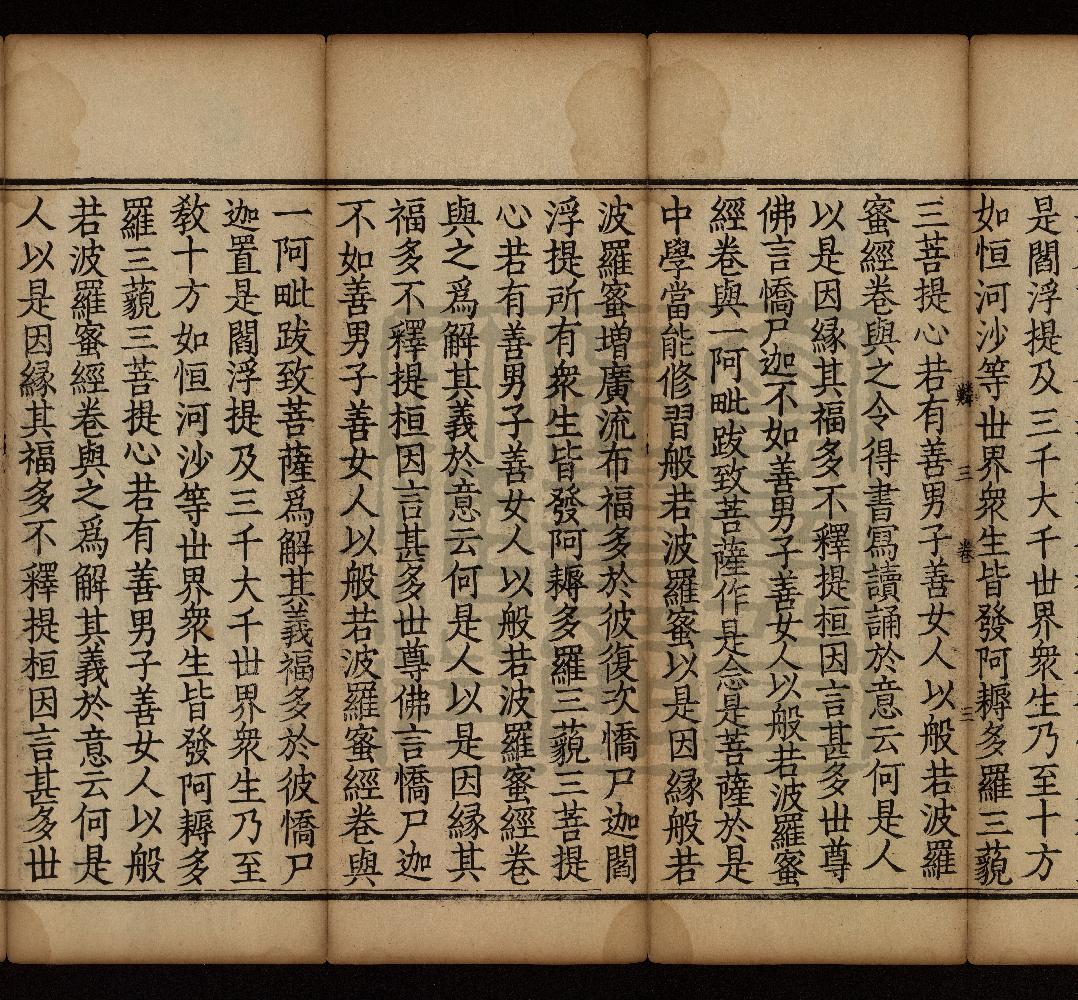 是閻浮提及三千大千世界衆生乃至十方
如恒河沙等世界衆生皆發阿耨多羅三藐
三菩提心若有善男子善女人以般若波羅
蜜經卷與之令得書寫讀誦於意云何是人
以是因緣其福多不釋提桓因言甚多世尊
佛言憍尸迦不如善男子善女人以般若波羅蜜
經卷與一阿毗跋致菩薩作是念是菩薩於是
中學當能修習般若波羅蜜以是因緣般若
波羅蜜增廣流布福多於彼復次憍尸迦閻
浮提所有衆生皆發阿耨多羅三藐三菩提
心若有善男子善女人以般若波羅蜜經卷
與之爲解其義於意云何是人以是因緣其
福多不釋提桓因言甚多世尊佛言憍尸迦
不如善男子善女人以般若波羅蜜經卷與
一阿毗跋致菩薩爲解其義福多於彼憍尸
迦置是閻浮提及三千大千世界衆生乃至
教十方如恒河沙等世界衆生皆發阿耨多
羅三藐三菩提心若有善男子善女人以般
若波羅蜜經卷與之爲解其義於意云何是
人以是因緣其福多不釋提桓因言甚多世
三 卷 三